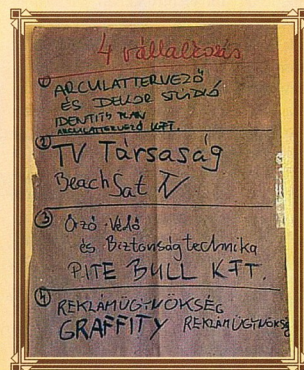 4 vállalkozás
① ARCULATTERVEZŐ
ÉS DEKOR STÚDIÓ
IDENTITY PLAN
ARCULATTERVEZŐ KFT.
② TV Társaság
Beach Sat TV
③ Őrző-Védő
és Biztonságtechnika
PITE BULL KFT.
④ REKLÁMÜGYNÖKSÉG
GRAFFITY REKLÁMÜGYNÖKSÉG